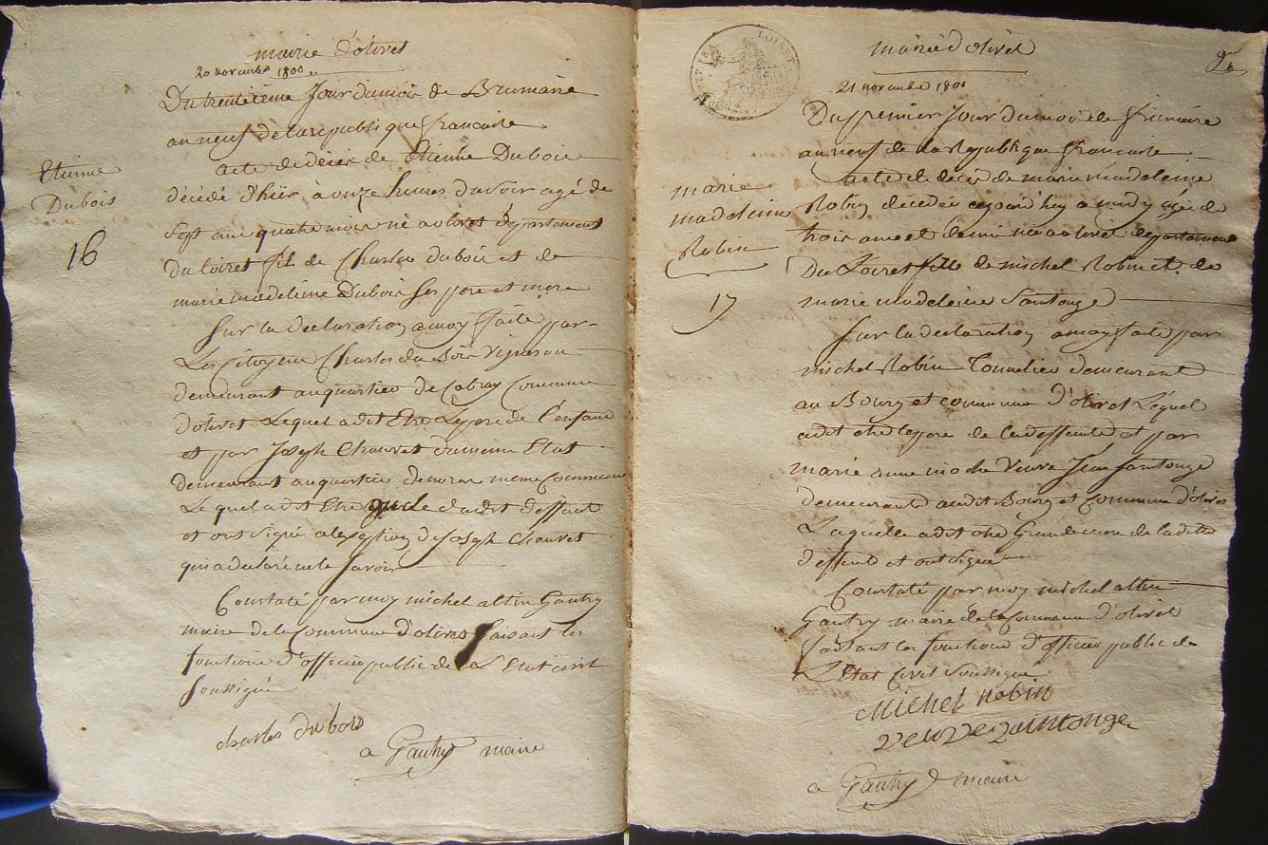 mairie d'olivet
20 novembre 1800
Du trentieme Jour du mois de Brumaire
an neuf de la republique francaise
acte de décès de Etienne Dubois
Etienne
Dubois
16
décédé d'hier à onze heures du soir agé de
Sept ans quatre mois né a olivet département
du loiret fil de Charles dubois et de
marie madeleine Dubois ses pere et mere
Sur la declaration a moy faite par
Le Citoyen Charles du Bois vigneron
demeurant au quartier de Commune
d'olivet Lequel a dit Etre Le pere de l'enfant
et par Joseph Chauvet du meme Etat
demeurant au quartier meme Commune
Lequel a dit Etre oncle du dit deffunt
et ont signé a lexseption de Joseph Chauvet
qui a declaré ne le savoir
Constaté par moy michel altin Gautry
maire de la Commune d'olivet faisant les
fonctions d'officier public de L'Etat civil
soussigné
charles dubois
a Gautry maire
mairie d'olivet
2
21 novembre 1800
Du premier Jour du mois de frimaire
an neuf de la Republique francaise
acte de décès de marie madeleine
marie
madeleine
Robin
17
Robin decedée ce jourd'huy a midy agée de
trois ans et demi née a olivet departement
Du Loiret fille de michel Robin et de
marie madeleine Santonge
Sur la declaration a moy faite par
michel Robin Tonnelier demeurant
au Bourg et commune d'olivet Lequel
a dit etre le pere de la deffunte et par
marie anne veuve Jean Santonge
demeurante au dit Bourg et commune d'olivet
Laquelle a dit etre Grande mere de la ditte
deffunte et ont signé
Constaté par moy michel altin
Gautry maire de la Commune d'olivet
faisant les fonctions d'officier public de
L'Etat Civil Soussigné
Michel robin
veuve saintonge
a Gautry maire